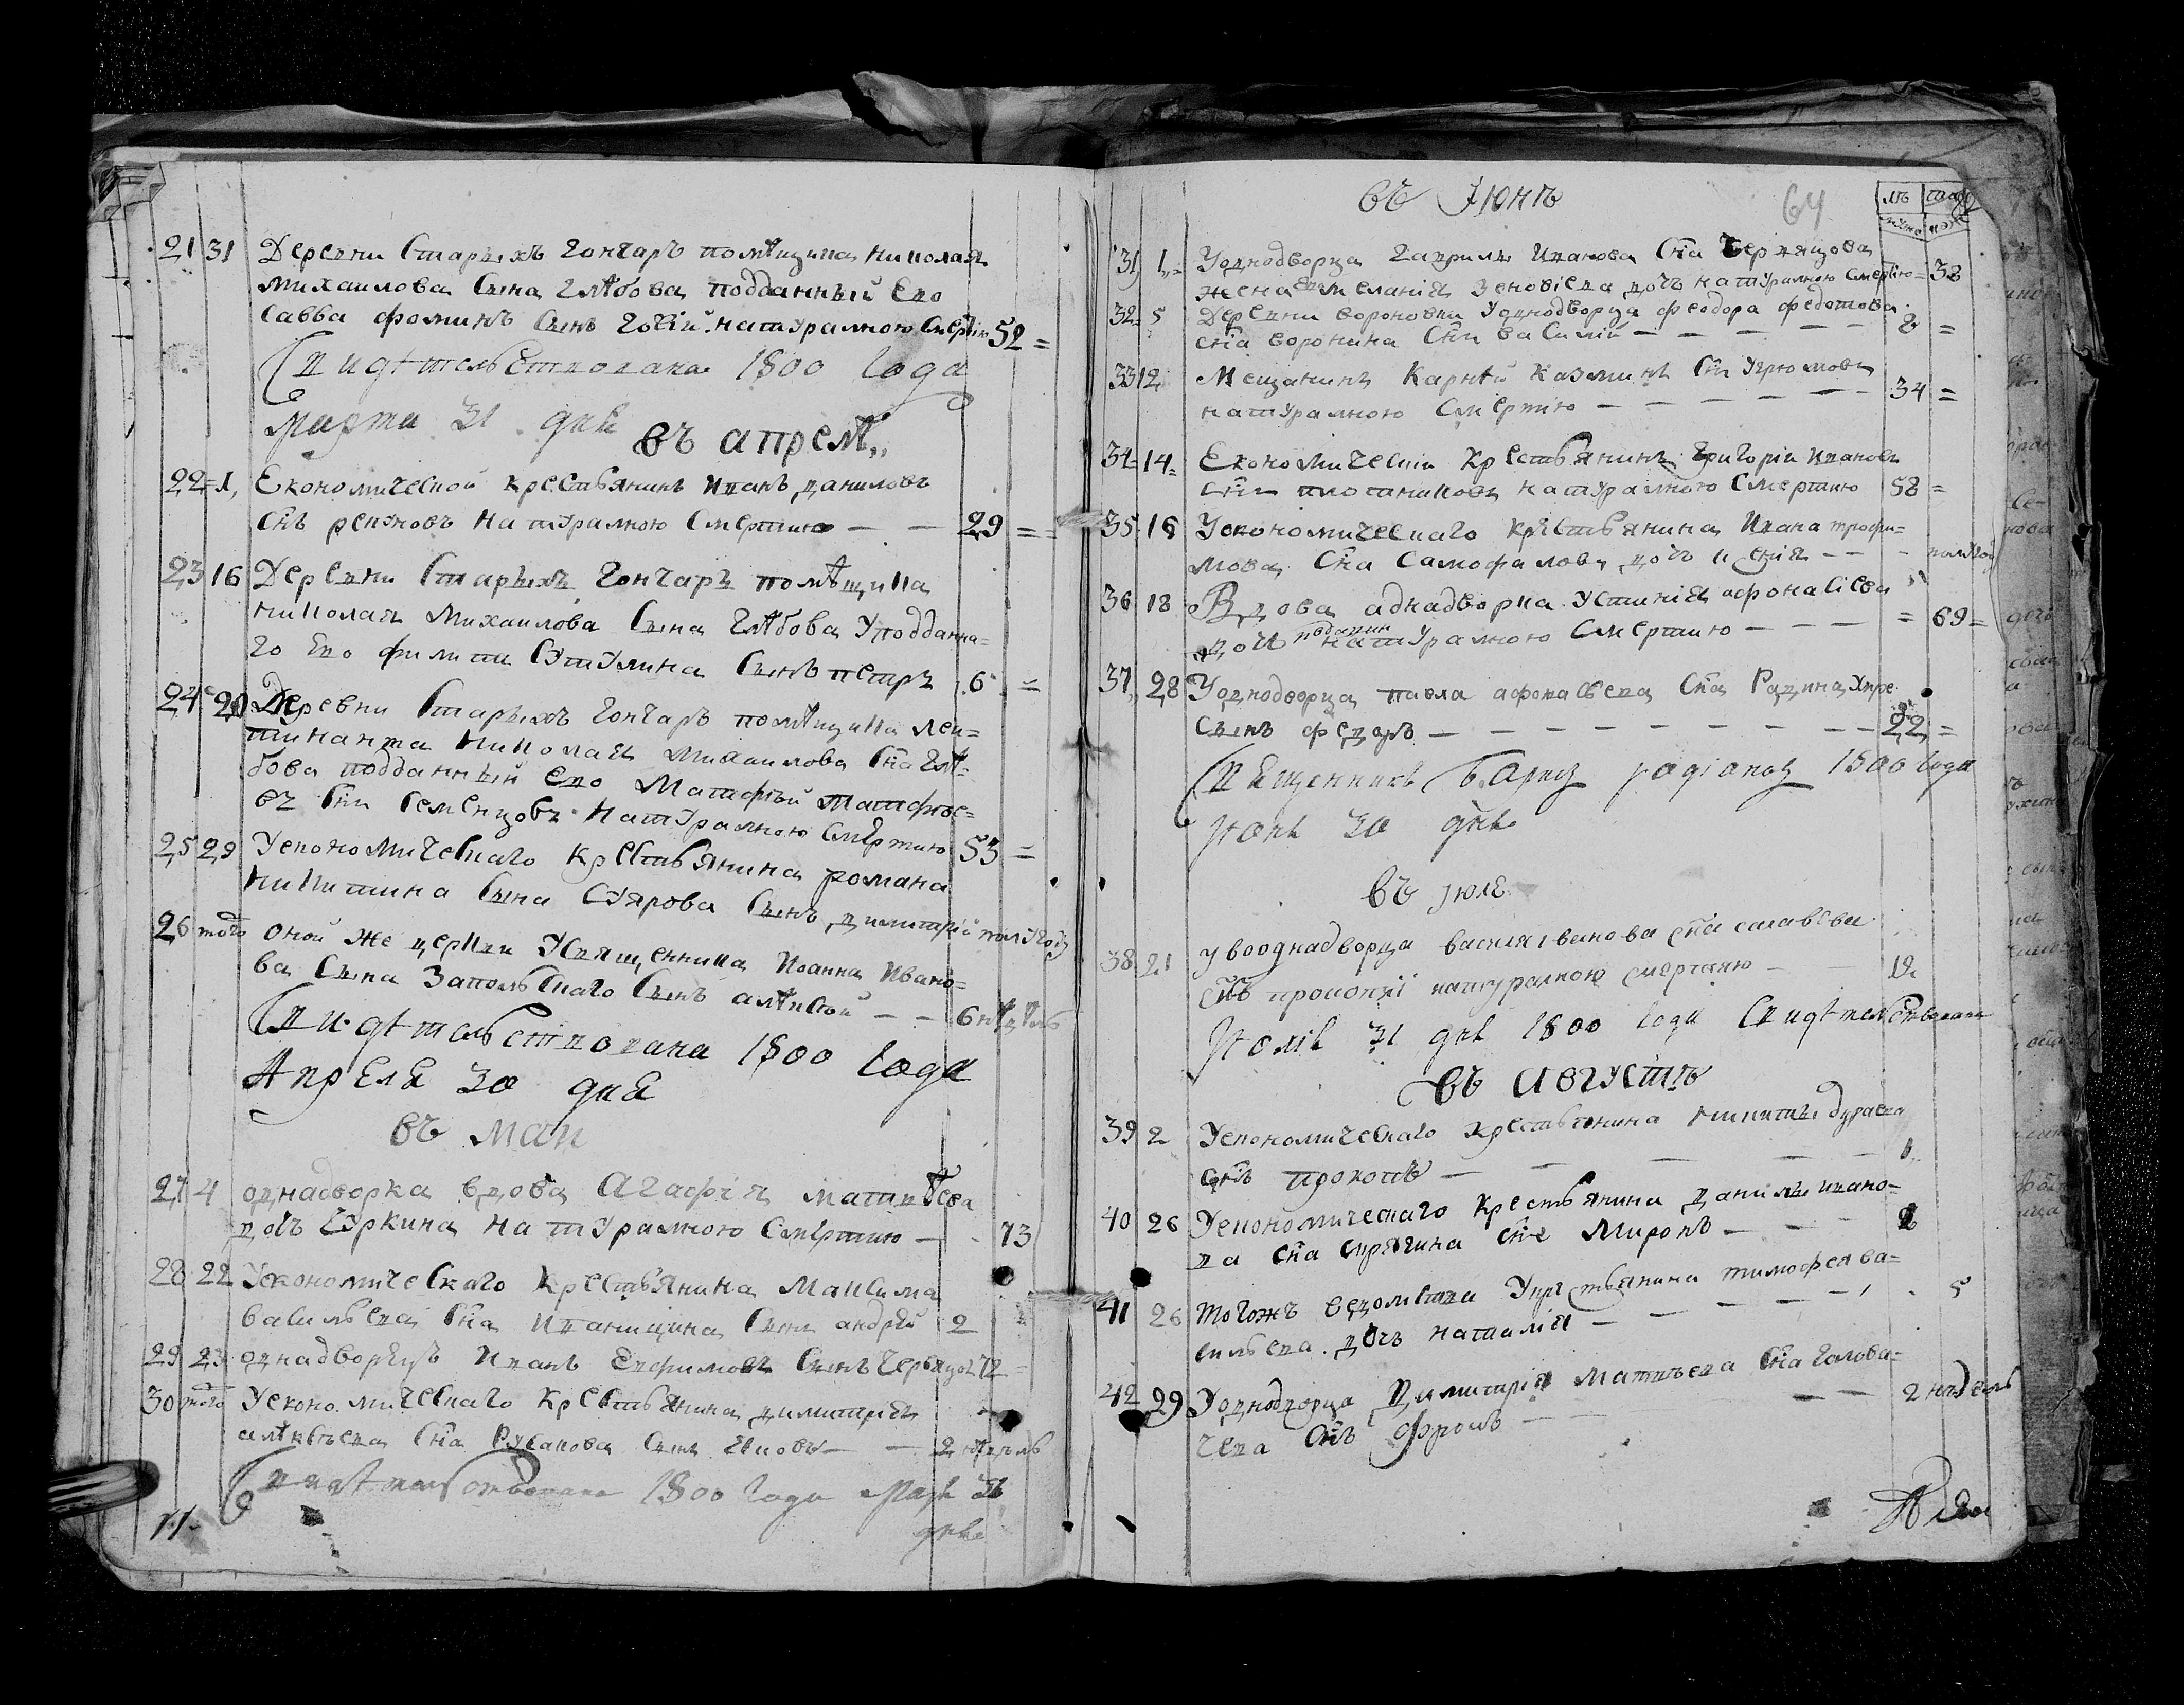 21 31 Деревни Старыхъ Гончаръ помѣщика николая
михаилова Сына Глѣбова подданный Его
Савва фоминъ Сынъ натуралною Смертию 52 =
Свидѣтельствована 1800 года
марта 31 дня
въ апреле
22 = 1 Економической крестьянинъ Иванъ даниловъ
снъ натуралною Смертию — — 29 =
23 16 Деревни Старыхъ Гончаръ помѣщика
николая Михаилова Сына Глѣбова Уподданна=
го Его филипа Сутулина Сынъ петръ 6 =
24 20 Деревни Старыхъ Гончаръ помѣщика леи=
тинанта николая Михаилова Сна Глѣ=
бова подданный Его Матфѣй Матфѣе=
въ Снъ Семенцовъ натуралною Смертию 53 =
25 29 Уекономическаго крестьянина романа
никитина Сына Сынъ димитрій полугоду
26 того оной же церкви Усвященника Иоанна Ивано=
ва Сына Запольскаго Сынъ алѣксѣй — — 6 нѣдѣль
Свидѣтельствована 1800 года
Апреля 30 дня
въ маи
27 4 однадворка вдова Агафія матвѣева
дочъ Чуркина натуралною Смертию — 73
28 22 Уекономическаго крестьянина Максима
васильева Сна Иванищина Снъ андрѣй 2
29 23 однадворецъ Иванъ Ефимовъ Сынъ 72 =
30 того Уекономическаго крестьянина димитрія
алѣксѣева Сна Русанова Снъ — — 2 нѣдѣль
Свидѣтельствована 1800 года Маія 31
дня
въ Июнѣ 64
31 1 = Уоднодворца гаврилы Иванова Сна
жена ево меланія Зеновіева дочъ натуралною Смертію = 38
32 = 5 Деревни вороновки Уоднодворца феодора федотова
сна воронина Снъ василій — — — — 2 =
33 12 Мещанинъ Карнѣй Казминъ Снъ Угрюмовъ
натуралною Смертию — — — — 34 =
34 = 14 = Економическій Крестьянинъ Григорій Ивановъ
Снъ плотниковъ натуралною Смертию 58 =
35 16 Уекономическаго крестьянина Ивана трофи=
мова Сна Самофалова дочъ — — полугоду
36 18 Вдова аднадворка Устинія афонасіева
дочъ натуралною Смертию — — — = 69 =
37 28 Уоднодворца павла афонасьева Сна
Сынъ федаръ — — — — — — 22 =
Священникъ Борисъ родіоновъ 1800 года
Июня 30 дня
въ июле
38 21 у однадворца василя іванова сна
снъ прокопій натуралною смертию — — 12
Июлія 31 дня 1800 года Свидѣтельствована
въ Августѣ
39 2 Уекономическаго крестьянина никиты
снъ прокопъ — — — — — 1
40 26 Уекономическаго крестьянина данилы ивано=
ва сна снъ Миронъ — — — 2
41 26 тогожъ ведомства Укрестьянина тимофея ва=
сильева дочъ наталія — — — — 5
42 29 Уоднодворца Димитрія Матвѣева Сна голова=
чева Снъ фролъ — — — 2 нѣдѣль